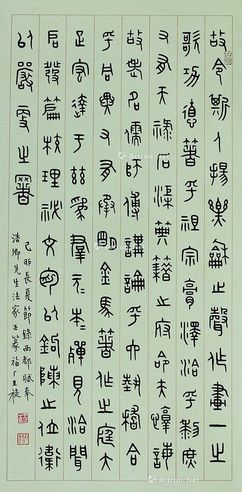 故令斯人揚樂龢之聲作畫一之
歌功德著乎祖宗膏澤洽乎黎庶
又有天祿石渠典籍之府命夫惇誨
故老名儒師傅講論乎六藝稽合
乎同異又有承明金馬著作之庭大
疋宏達于茲爲羣元本殫見洽聞
启發篇校理祕文周以鉤陳之位衛
以嚴更之署
己卯長夏節錄西都賦奉
浩卿先生法家正篆福厂王禔